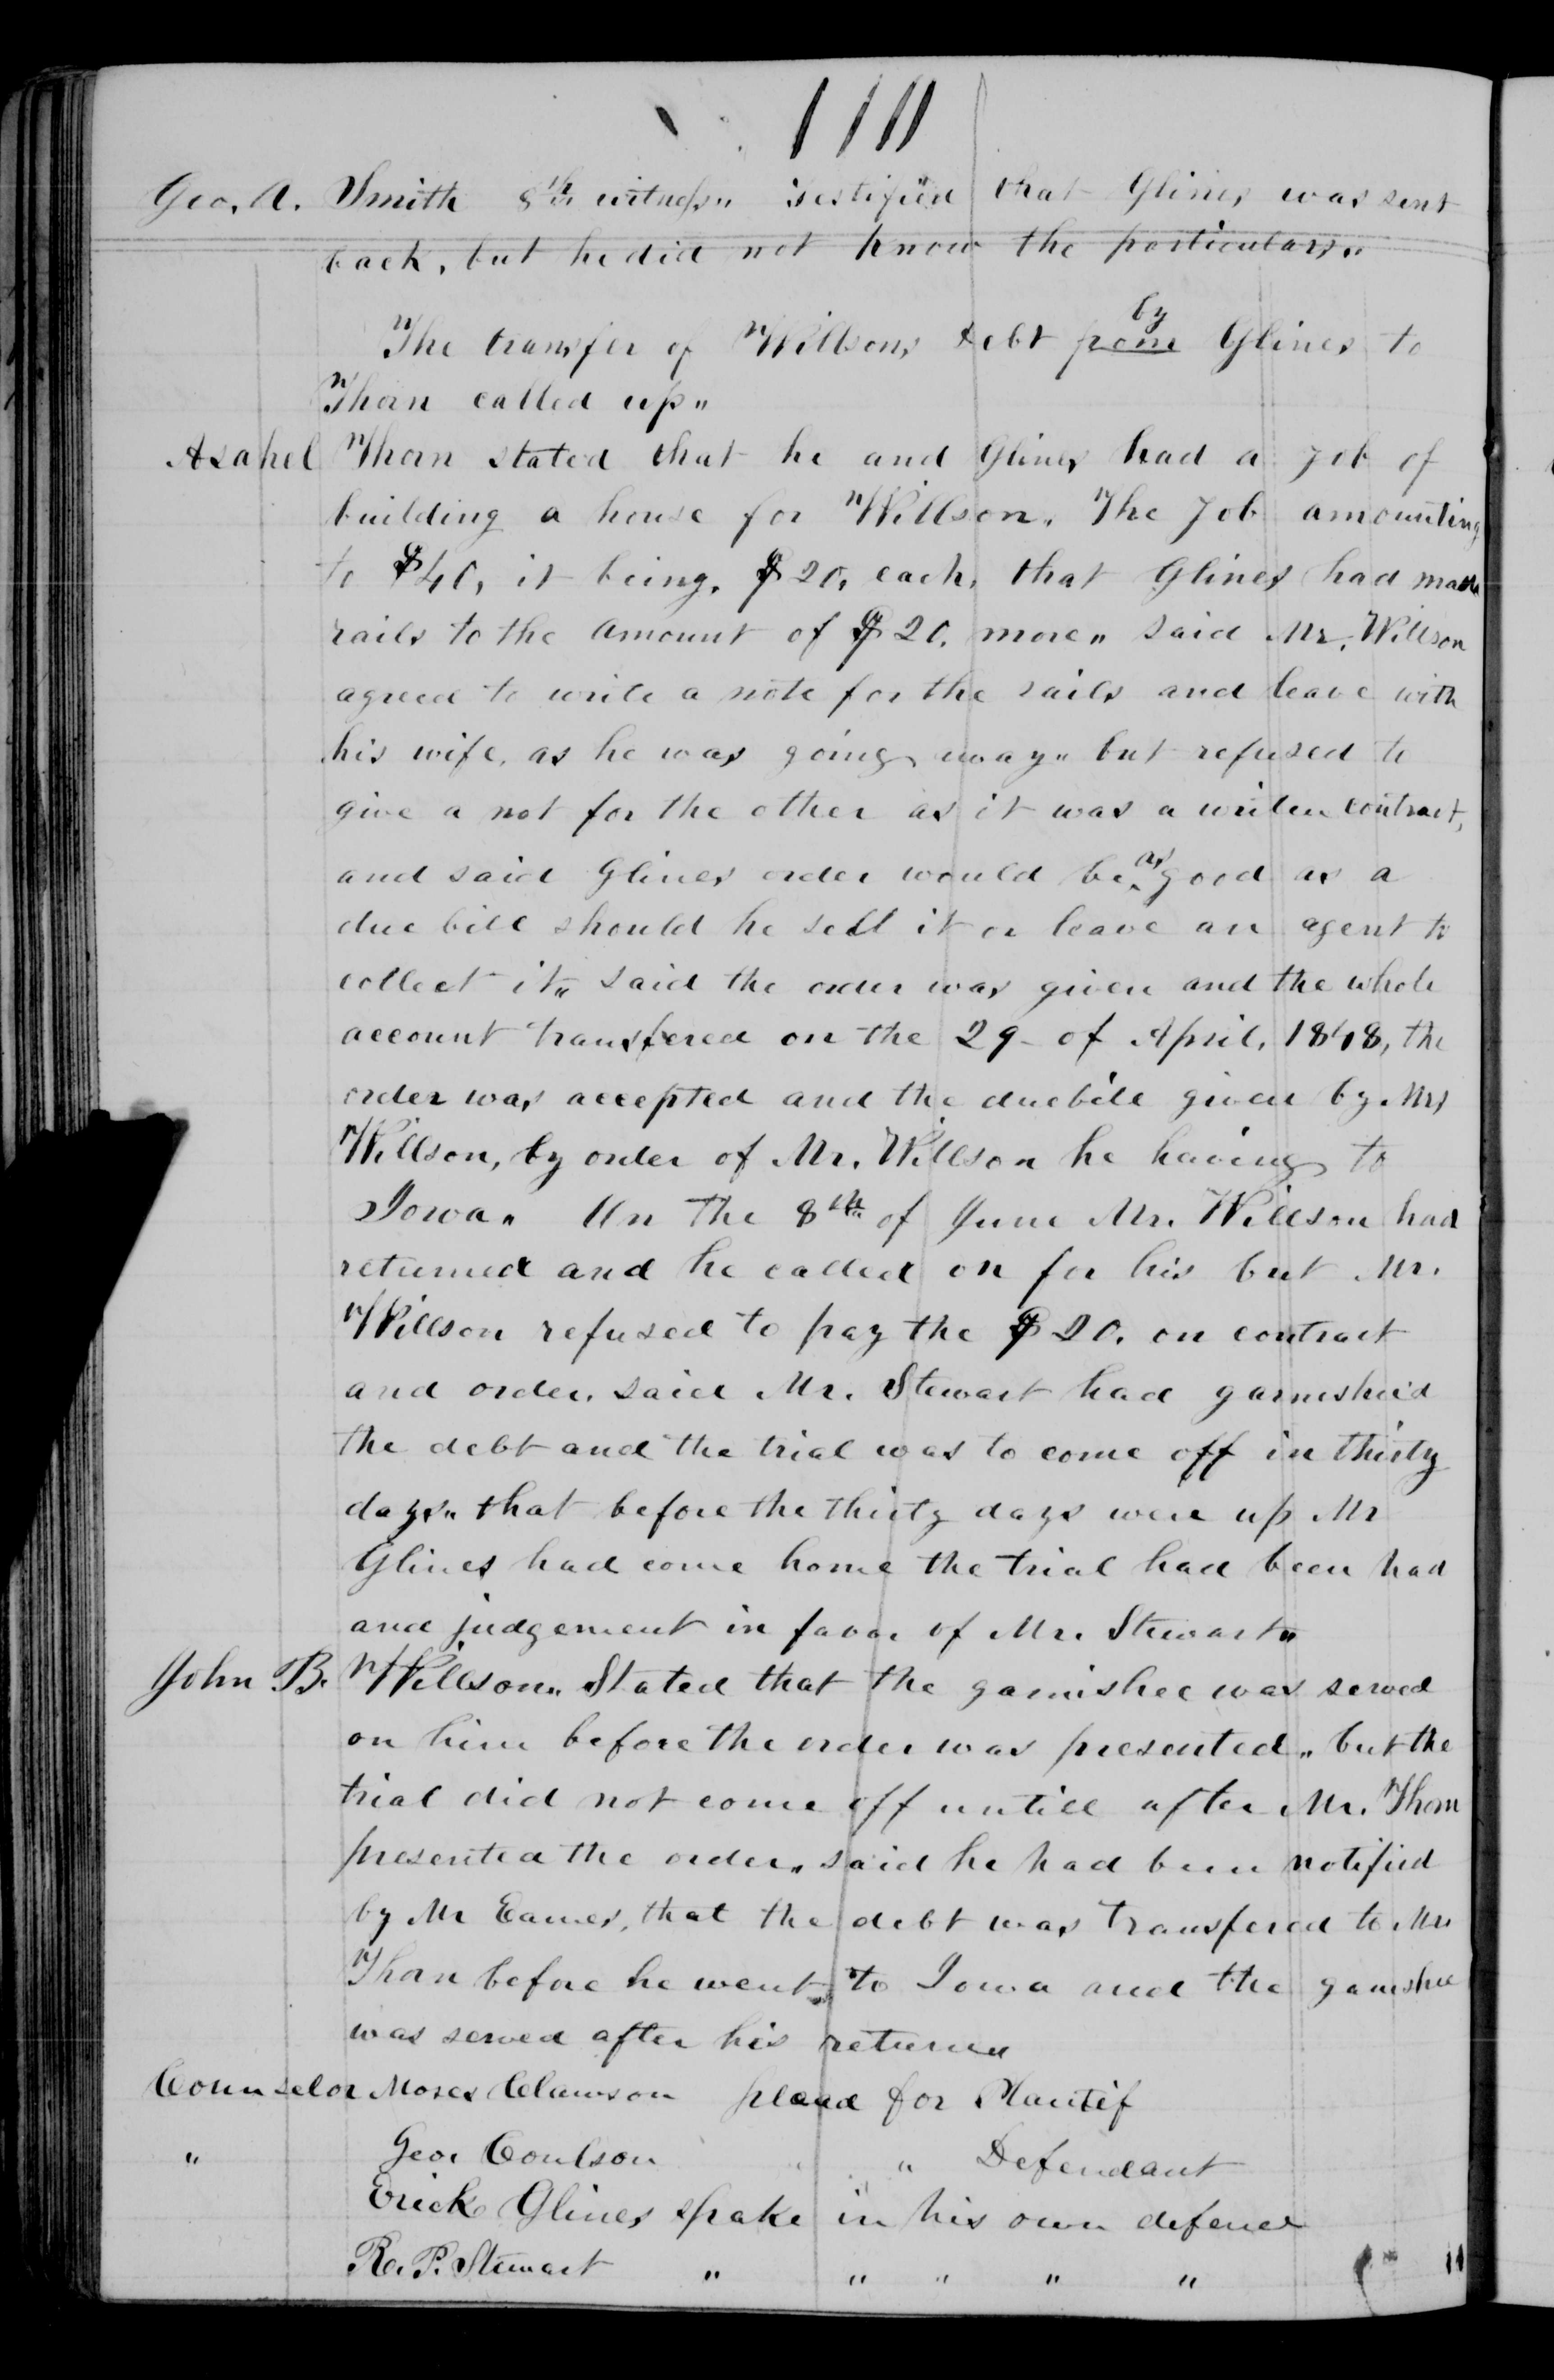 Geo. A. Smith 8th witness" testified that Glines was sent
back, but he did not know the particulars"
The transfer of Willsons debt from by Glines to
Thorn called up"
Asahel Thorn stated that he and Glines had a job of
building a house for Willson. The Job amounting
to $40, it being. $20, each, that Glines had made
rails to the amount of $20. more" said Mr. Willson
agreed to write a note for the rails and leave with
his wife, as he was going away" but refused to
give a not for the other as it was a writen contract,
and said Glines order would be as good as a
due bill should he sell it or leave an agent to
collect it" said the order was given and the whole
account transfered on the 29 - of April, 1848, the
order was accepted and the duebill given by Mrs
Willson, by order of Mr. Willson he having to
Iowa" On the 8th of June Mr. Willson had
returned and he called on for his but Mr.
Willson refused to pay the $20. on contract
and order. said Mr. Stewart had garnishee'd
the debt and the trial was to come off in thirty
days" that before the thirty days were up Mr
Glines had come home the trial had been had
and judgement in favor of Mr. Stewart"
John B. Willson" Stated that the garnishee was served
on him before the order was presented" but the
trial did not come off untill after Mr. Thorn
presented the order" said he had been notified
by Mr Eames, that the debt was transfered to Mr
Thorn before he went to Iowa and the garnishee
was served after his return"
Counselor Moses Clawson plead for Plantif
" Geo. Coulson " Defendant
Erick Glines spake in his own defence
R. P. Stewart " " " " "